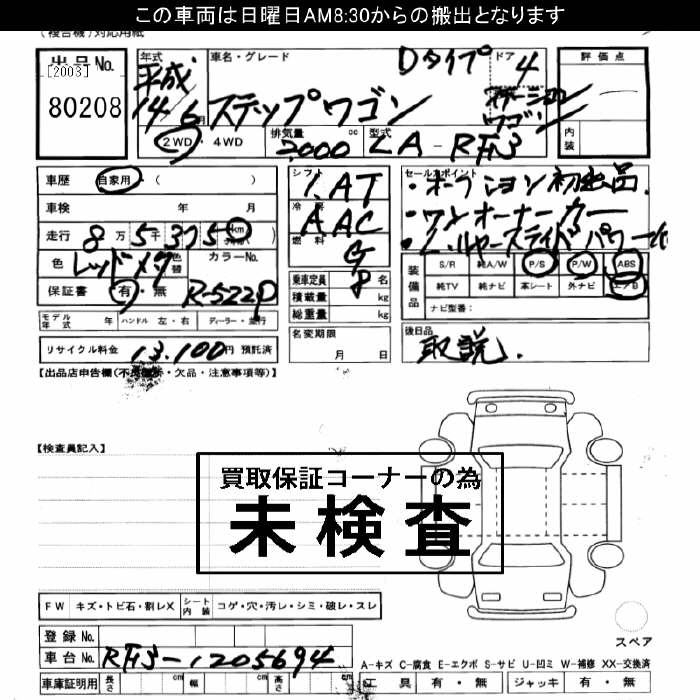 この車両は日曜日AM8:30からの搬出となります
(複合機)対応用紙
出品No.
[2003]
80208
年式 車名・グレード ドア
平成 14 6月 ステップワゴン Dタイプ 4
ステーションワゴン
2WD・4WD 排気量 2000 cc 型式 LA-RF3
評価点
内装
車歴 自家用・( )
車検 年 月
走行 8万5千375 km
色 レッドメタ 色替 カラーNo.
保証書 有・無 R-522P
シフト 1.AT
冷房 AAC
燃料 G
乗車定員 8 名
積載量 kg
総重量 kg
セールスポイント
・オークション初出品.
・ワンオーナーカー
装備品 S/R 純A/W P/S P/W ABS
純TV 純ナビ 革シート 外ナビ エアB
ナビ型番:
モデル年式 年 ハンドル 左・右 ディーラー・並行
名変期限
月 日
後日品
取説.
リサイクル料金 13.100 円 預託済
【出品店申告欄(不具合箇所・欠品・注意事項等)】
【検査員記入】
買取保証コーナーの為
未検査
FW キズ・トビ石・割レX シート内装 コゲ・穴・汚レ・シミ・破レ・スレ
登録No.
車台No. RF3-1205694
車庫証明用 長さ cm 幅 cm 高さ cm
スペア
A-キズ C-腐食 E-エクボ S-サビ U-凹ミ W-補修 XX-交換済
工具 有・無 ジャッキ 有・無